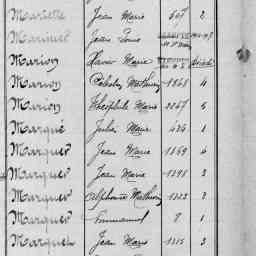 Mariette Jean Marie 507 2
Marquet Jean
Marion Xavier Marie
Marion Mathurin 1868 4
Marion Théophile Marie 2867 5
Marqué Jules Marie 426 1
Marquer Jean Marie 1869 4
Marquer Jean Marie 1298 3
Marquer Alphonse Mathurin 1323 2
Marquer Emmanuel 8 1
Marquer Jean Marie 1315 3